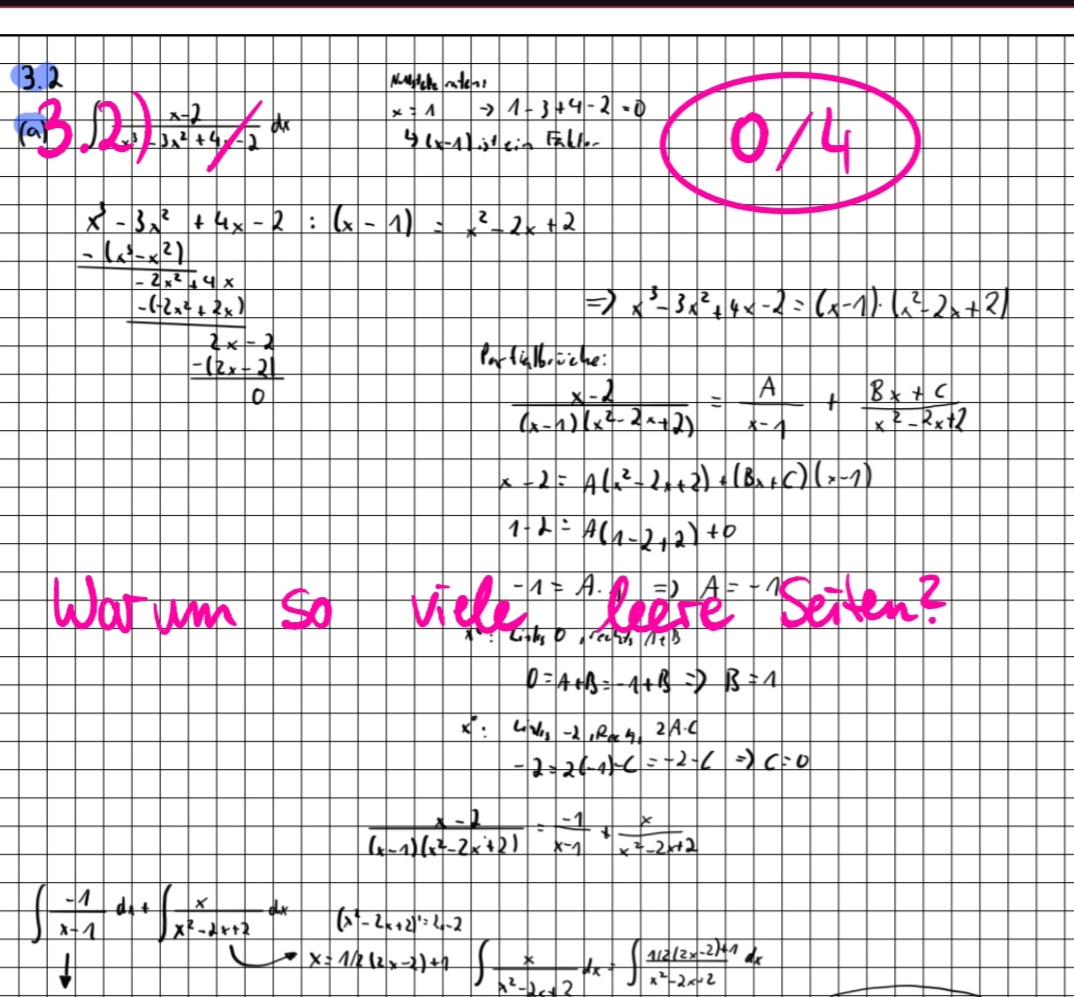 3.2
(a) ∫ x-2 / x³-3x²+4x-2 dx
3.2) /
x=1 → 1-3+4-2=0
↳ (x-1) ist ein Faktor
0/4
x³ - 3x² + 4x - 2 : (x - 1) = x² - 2x + 2
-(x³-x²)
-2x²+4x
-(-2x²+2x)
2x-2
-(2x-2)
0
⇒ x³-3x²+4x-2 = (x-1)·(x²-2x+2)
Partialbrüche:
x-2 / (x-1)(x²-2x+2) = A / x-1 + Bx+C / x²-2x+2
x-2 = A(x²-2x+2)+(Bx+C)(x-1)
1-2 = A(1-2+2)+0
-1 = A· ⇒ A = -1
Warum so viele leere Seiten?
Links 0, rechts A+B
0=A+B=-1+B ⇒ B=1
x⁰: Links -2, 2A-C
-2=2(-1)-C=-2-C ⇒ C=0
x-2 / (x-1)(x²-2x+2) = -1 / x-1 + x / x²-2x+2
∫ -1 / x-1 dx + ∫ x / x²-2x+2 dx (x²-2x+2)'=2x-2
↓ x=1/2(2x-2)+1 ∫ x / x²-2x+2 dx = ∫ 1/2(2x-2)+1 / x²-2x+2 dx